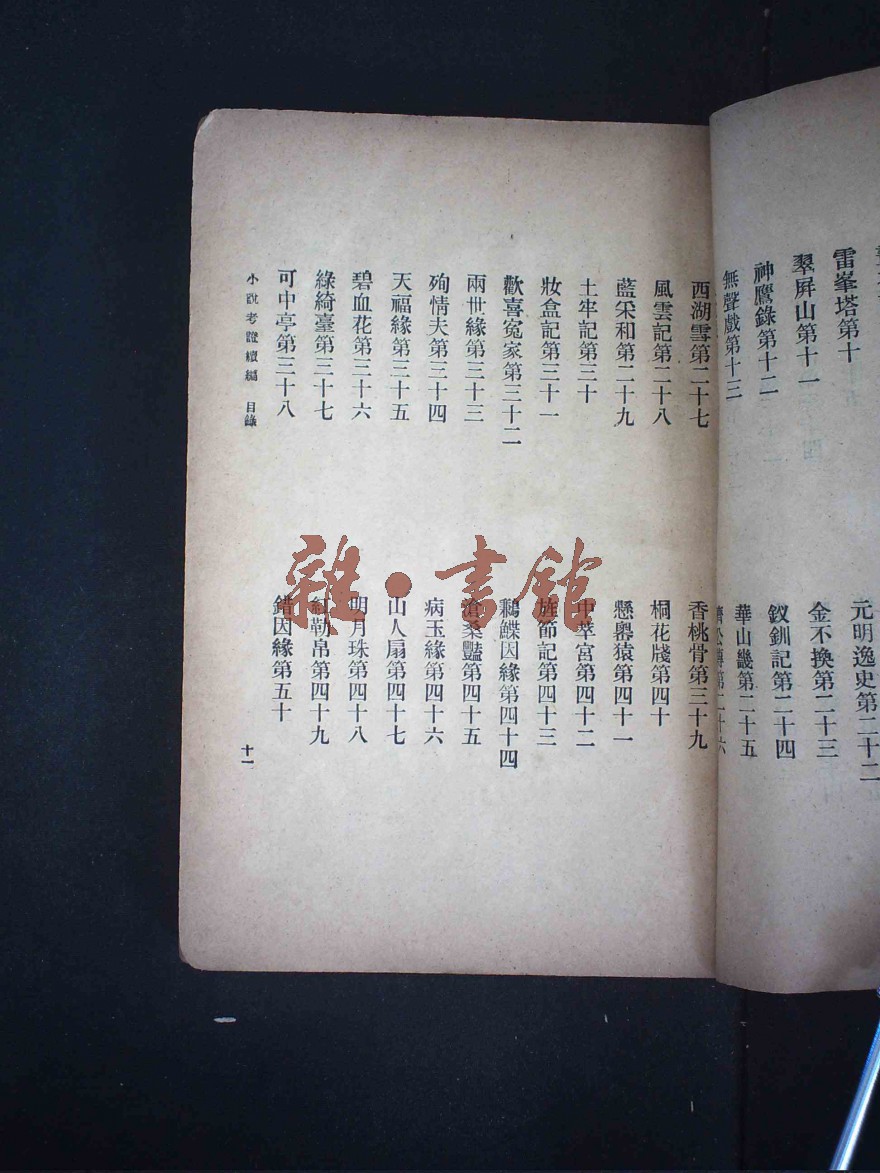 雷峯塔第十
翠屏山第十一
神鷹錄第十二
無聲戲第十三
元明逸史第二十二
金不換第二十三
釵釧記第二十四
華山畿第二十五
濟公傳第二十六
西湖雪第二十七
風雲記第二十八
藍采和第二十九
土牢記第三十
妝盒記第三十一
歡喜冤家第三十二
兩世緣第三十三
殉情夫第三十四
天福緣第三十五
碧血花第三十六
綠綺臺第三十七
可中亭第三十八
香桃骨第三十九
桐花牋第四十
懸嶴猿第四十一
中萃宮第四十二
旌節記第四十三
鶼鰈因緣第四十四
滄桑豔第四十五
病玉緣第四十六
山人扇第四十七
明月珠第四十八
紅勒帛第四十九
錯因緣第五十
小說考證續編 目錄
十一
雜·書館